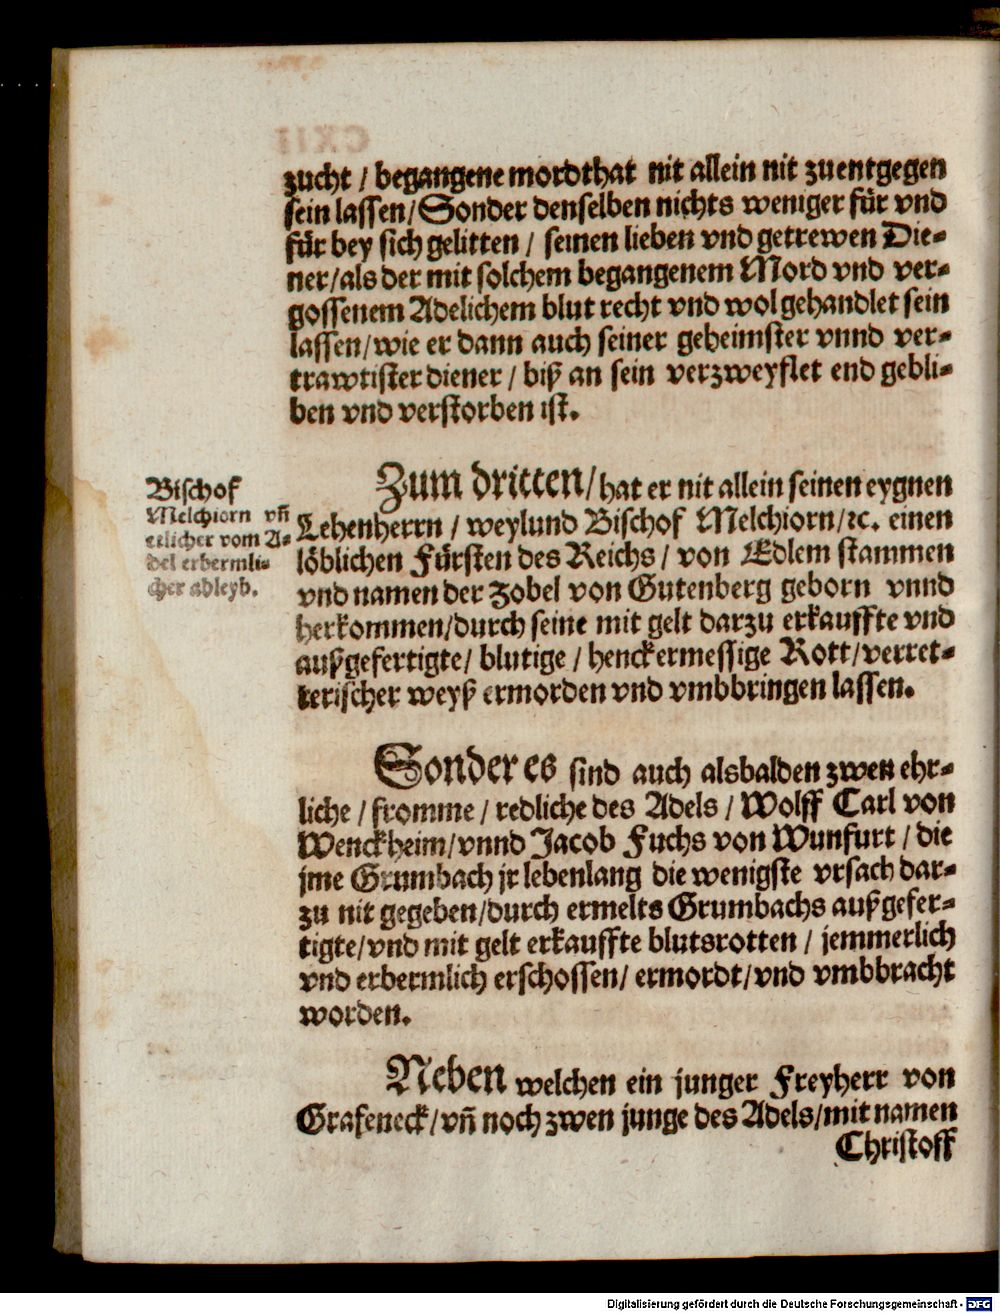 zucht / begangene mordthat nit allein nit zuentgegen
sein lassen/Sonder denselben nichts weniger für vnd
für bey sich gelitten / seinen lieben vnd getrewen Die-
ner/als der mit solchem begangenem Mord vnd ver-
gossenem Adelichem blut recht vnd wol gehandlet sein
lassen/wie er dann auch seiner geheimster vnnd ver-
trawtister diener / biß an sein verzweyflet end gebli-
ben vnd verstorben ist.
Bischof
Melchiorn vñ
etlicher vom A-
del erbermli-
cher ableyb.
Zum dritten/hat er nit allein seinen eygnen
Lehenherrn / weylund Bischof Melchiorn/ꝛc. einen
löblichen Fürsten des Reichs / von Edlem stammen
vnd namen der Zobel von Gutenberg geborn vnnd
herkommen/durch seine mit gelt darzu erkauffte vnd
außgefertigte/ blutige / henckermessige Rott/verret-
terischer weyß ermorden vnd vmbbringen lassen.
Sonder es sind auch alsbalden zwen ehr-
liche / fromme / redliche des Adels / Wolff Carl von
Wenckheim/vnnd Jacob Fuchs von Wunfurt / die
jme Grumbach jr lebenlang die wenigste vrsach dar-
zu nit gegeben/durch ermelts Grumbachs außgefer-
tigte/vnd mit gelt erkauffte blutsrotten / jemmerlich
vnd erbermlich erschossen/ ermordt/vnd vmbbracht
worden.
Neben welchen ein junger Freyherr von
Grafeneck/vñ noch zwen junge des Adels/mit namen
Christoff
Digitalisierung gefördert durch die Deutsche Forschungsgemeinschaft - DFG